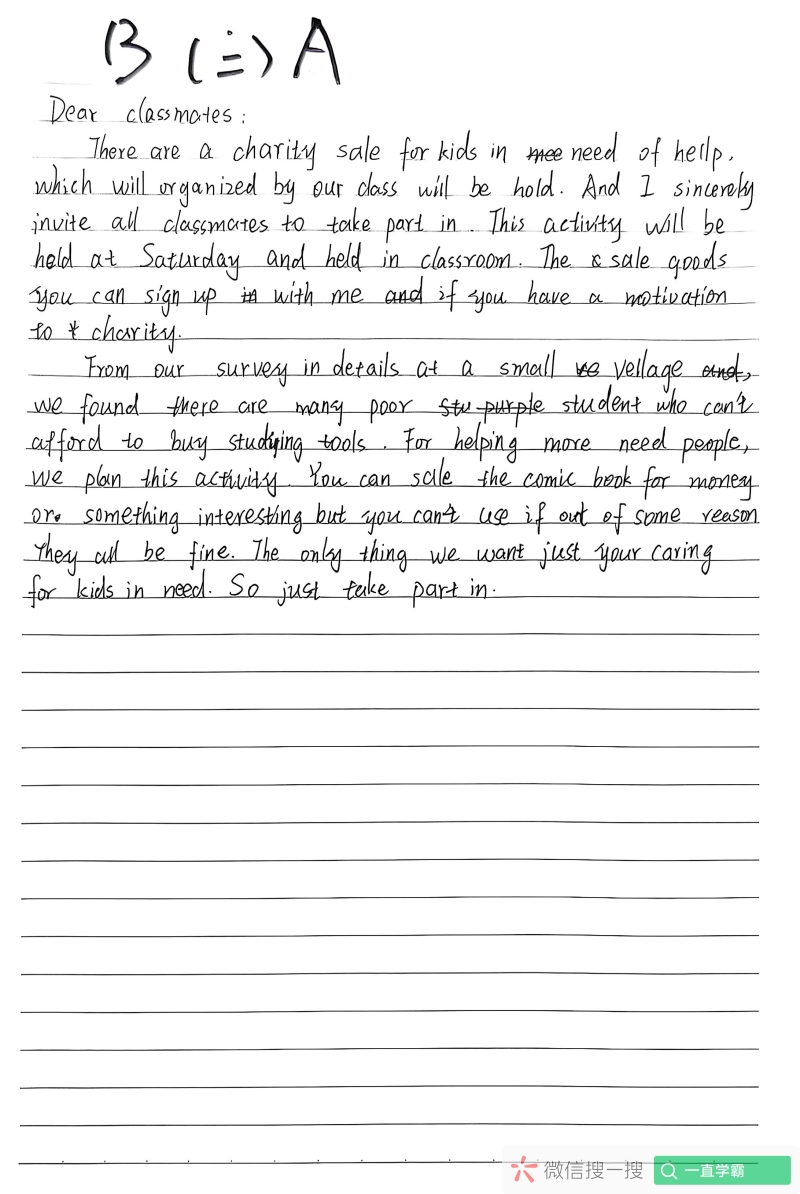 B (二) A
Dear classmates:
There are a charity sale for kids in need of hellp,
which will organized by our class will be hold. And I sincerely
invite all classmates to take part in. This activity will be
hold at Saturday and held in classroom. The sale goods
you can sign up with me if you have a motivation
to charity.
From our survey in details at a small vellage,
we found there are many poor student who can't
afford to buy studying tools. For helping more need people,
we plan this activity. You can sale the comic book for money
or something interesting but you can't use if out of some reason
They all be fine. The only thing we want just your caring
for kids in need. So just take part in.
微信搜一搜
一直学霸